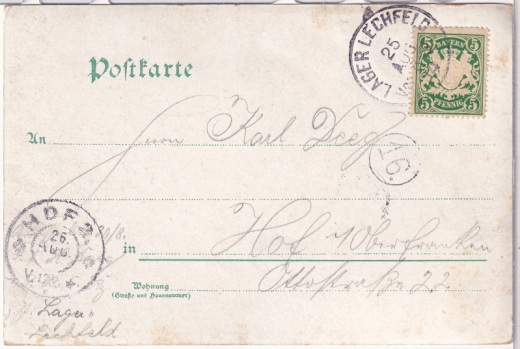 LAGER LECHFELD
25
AUG
BAYERN
5 5
5 PFENNIG 5
Postkarte
An Herrn Karl Deeg
16.
HOF 2
26.
AUG.
in Hof i/Oberfranken
Wohnung
(Straße und Hausnummer)
Ottostraße 22
Lager
Lechfeld